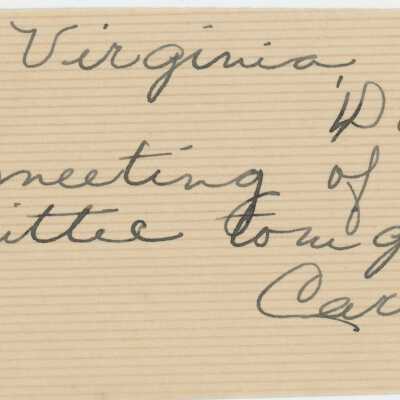 Virginia
D
meeting of
ittee tonig
Car